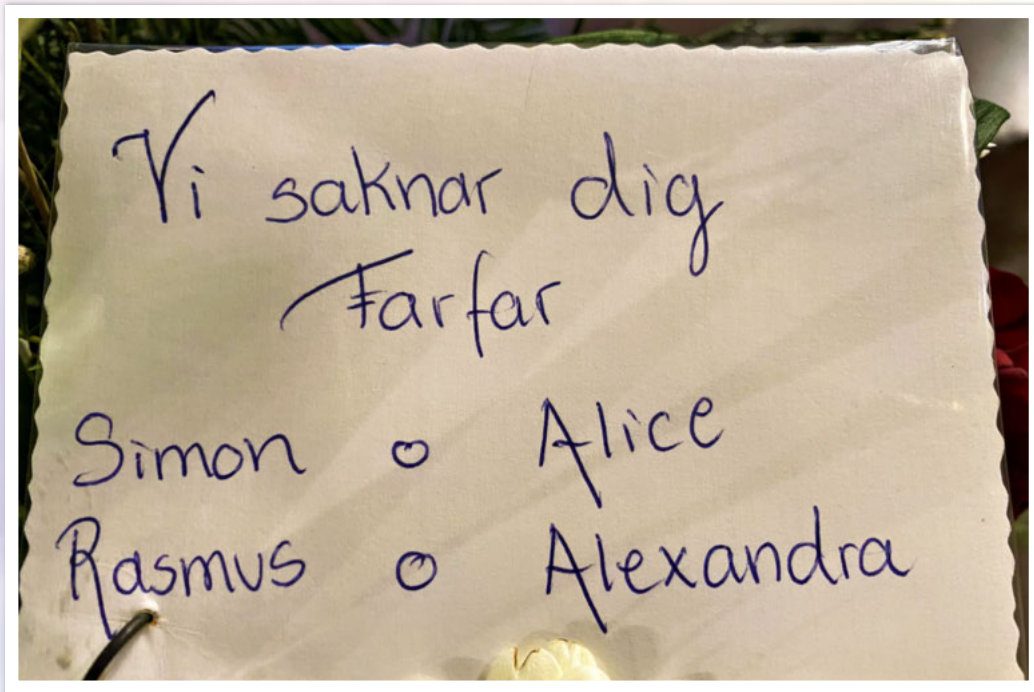 Vi saknar dig
Farfar
Simon o Alice
Rasmus o Alexandra